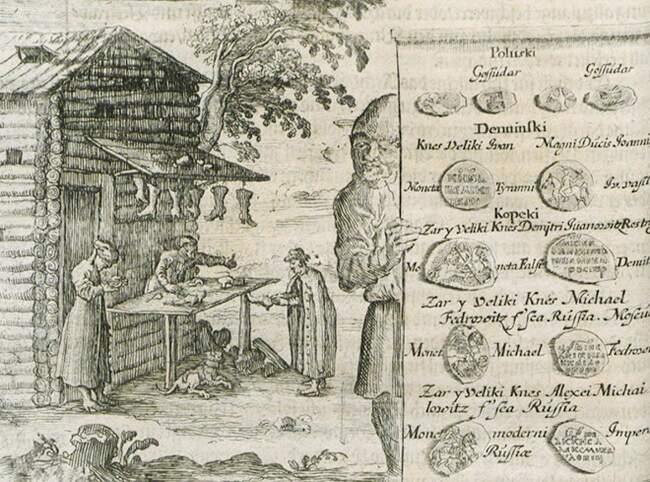 Poluski
Gossudar Gossudar
Denninski
Knes Veliki Ivan Magni Ducis Ioanni
Moneta Tyranni Iv. vasil
Kopeki
Zar y Veliki Knes Demitri Iuanowitz Rostri
Mo neta False Demit
Zar y Veliki Knes Michael
Fedrowitz f' sea Russia. Moscu
Monet Michael Fedrowit
Zar y Veliki Knes Alexei Michai
lowitz f' sea Russia
Mone moderni Impera
Russiæ